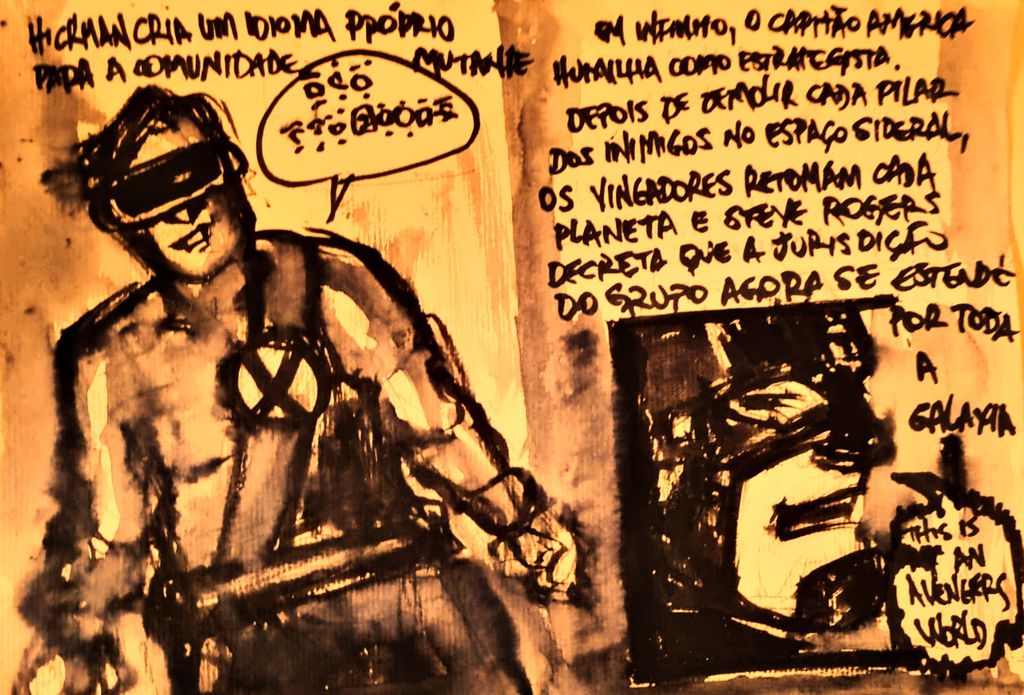 HICKMAN CRIA UM IDIOMA PRÓPRIO
PARA A COMUNIDADE MUTANTE
X
EM INFINITO, O CAPITÃO AMERICA
HUMILHA COMO ESTRATEGISTA.
DEPOIS DE DEMOLIR CADA PILAR
DOS INIMIGOS NO ESPAÇO SIDERAL,
OS VINGADORES RETOMAM CADA
PLANETA E STEVE ROGERS
DECRETA QUE A JURISDIÇÃO
DO GRUPO AGORA SE ESTENDE
POR TODA
A
GALAXIA
THIS IS
AN
AVENGERS
WORLD